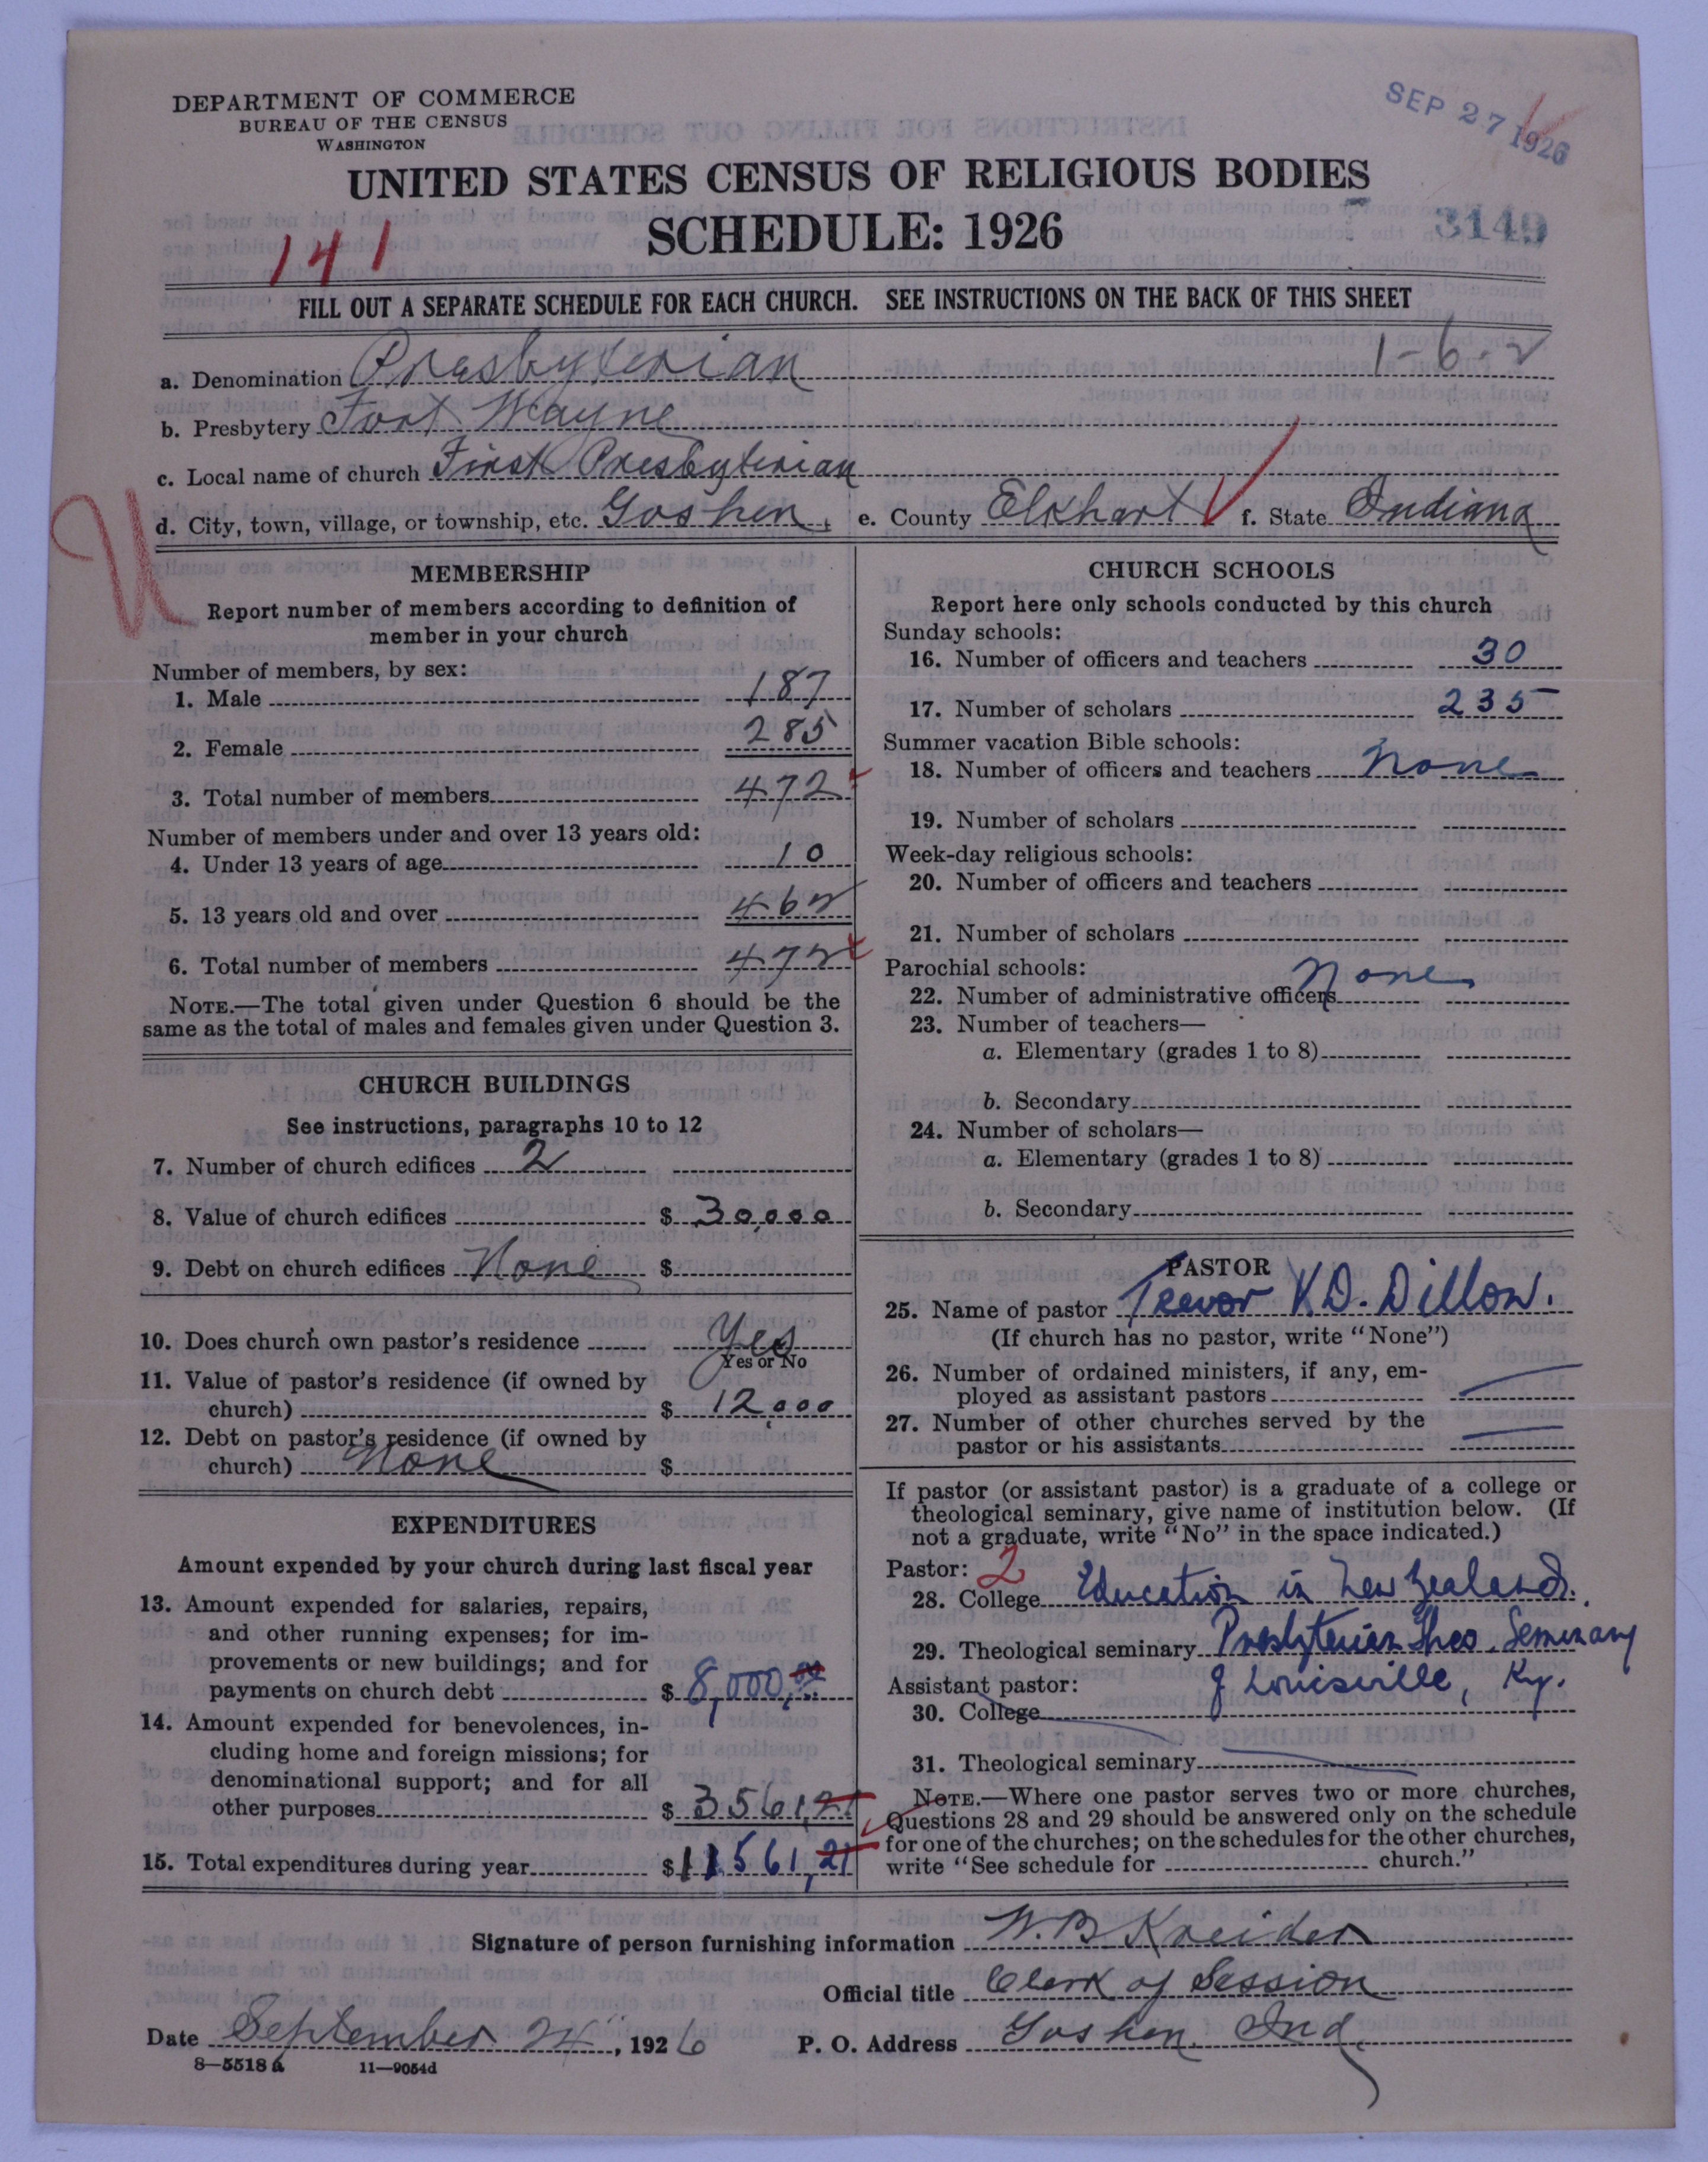 DEPARTMENT OF COMMERCE
BUREAU OF THE CENSUS
WASHINGTON
SEP 27 1926
UNITED STATES CENSUS OF RELIGIOUS BODIES
SCHEDULE: 1926
3149
141
FILL OUT A SEPARATE SCHEDULE FOR EACH CHURCH. SEE INSTRUCTIONS ON THE BACK OF THIS SHEET
a. Denomination Presbyterian 1-6-2
b. Presbytery Fort Wayne
c. Local name of church First Presbyterian
d. City, town, village, or township, etc. Goshen e. County Elkhart f. State Indiana
U
MEMBERSHIP
Report number of members according to definition of
member in your church
Number of members, by sex:
1. Male 187
2. Female 285
3. Total number of members 472
Number of members under and over 13 years old:
4. Under 13 years of age 10
5. 13 years old and over 462
6. Total number of members 472
NOTE.—The total given under Question 6 should be the
same as the total of males and females given under Question 3.
CHURCH BUILDINGS
See instructions, paragraphs 10 to 12
7. Number of church edifices 2
8. Value of church edifices $ 30,000
9. Debt on church edifices None $
10. Does church own pastor's residence Yes
Yes or No
11. Value of pastor's residence (if owned by
church) $ 12,000
12. Debt on pastor's residence (if owned by
church) None $
EXPENDITURES
Amount expended by your church during last fiscal year
13. Amount expended for salaries, repairs,
and other running expenses; for im-
provements or new buildings; and for
payments on church debt $ 8,000.00
14. Amount expended for benevolences, in-
cluding home and foreign missions; for
denominational support; and for all
other purposes $ 3561,21
15. Total expenditures during year $ 11561,21
CHURCH SCHOOLS
Report here only schools conducted by this church
Sunday schools:
16. Number of officers and teachers 30
17. Number of scholars 235
Summer vacation Bible schools:
18. Number of officers and teachers None
19. Number of scholars
Week-day religious schools:
20. Number of officers and teachers
21. Number of scholars
Parochial schools:
22. Number of administrative officers None
23. Number of teachers—
a. Elementary (grades 1 to 8)
b. Secondary
24. Number of scholars—
a. Elementary (grades 1 to 8)
b. Secondary
PASTOR
25. Name of pastor Trevor V.D. Dillon.
(If church has no pastor, write "None")
26. Number of ordained ministers, if any, em-
ployed as assistant pastors
27. Number of other churches served by the
pastor or his assistants
If pastor (or assistant pastor) is a graduate of a college or
theological seminary, give name of institution below. (If
not a graduate, write "No" in the space indicated.)
Pastor: 2
28. College Education in New Zealand.
29. Theological seminary Presbyterian Theo. Seminary
Assistant pastor: of Louisville, Ky.
30. College
31. Theological seminary
NOTE.—Where one pastor serves two or more churches,
Questions 28 and 29 should be answered only on the schedule
for one of the churches; on the schedules for the other churches,
write "See schedule for church."
Signature of person furnishing information W. B. Kreider
Official title Clerk of Session
Date September 24", 1926 P. O. Address Goshen, Ind.
8—5518 a 11—9054d